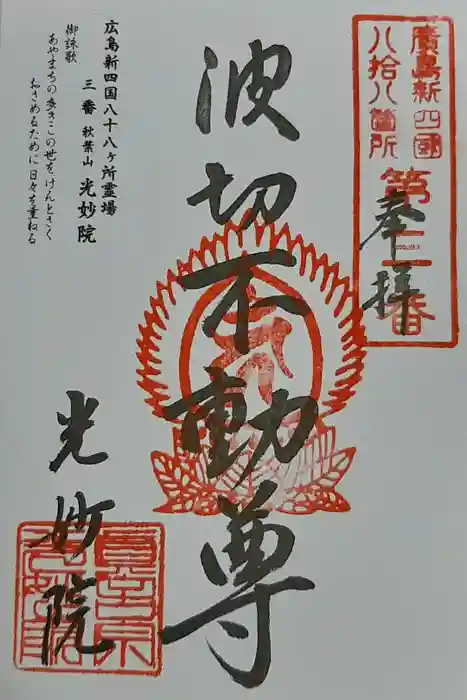 廣島新四國
八拾八箇所
第三番
奉拝
波切不動尊
広島新四国八十八ヶ所霊場
三番 秋葉山 光妙院
御詠歌
あやまちの多きこの世をけんとさく
おさめるために日々を重ねる
光妙院